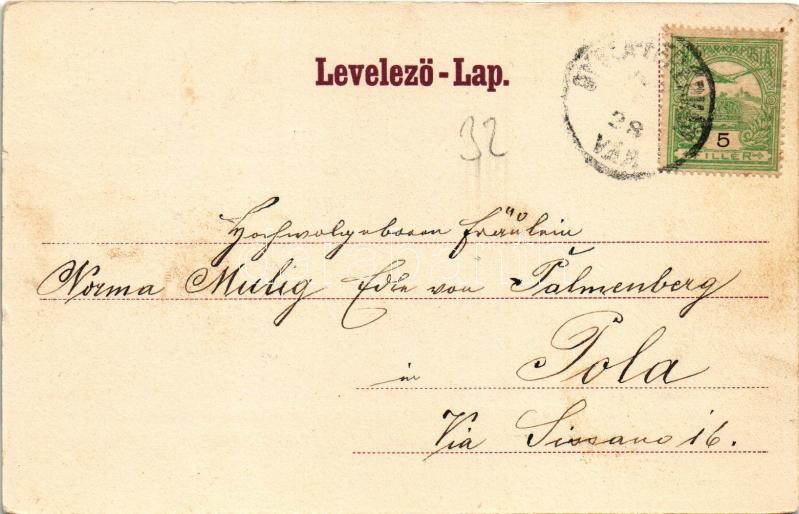 Levelező - Lap.
28
VÁR
MAGYAR KIR. POSTA
5
FILLÉR
32
Hochwolgeboren Fräulein
Norma Mutig Edle von Palmenberg
in Pola
Via Sissano 16.